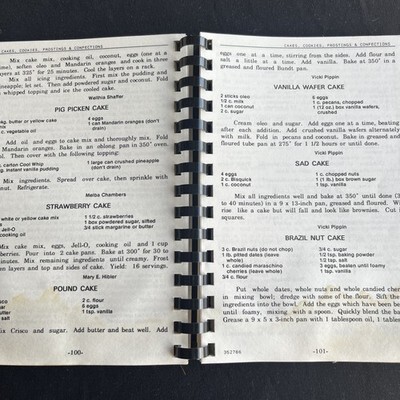 CAKES, COOKIES, FROSTINGS & CONFECTIONS
Mix cake mix, cooking oil, coconut, eggs (one at a
time), soften oleo and Mandarin oranges and cook in three
layers at 325° for 25 minutes. Cool layers on a rack.
Mix all icing ingredients. First mix the pudding and
pineapple, let set. Then add powdered sugar and coconut. Fold
whipped topping and ice the cooled cake.
Waltina Shaffer
PIG PICKEN CAKE
pkg. butter or yellow cake
4 eggs
1 can Mandarin oranges (don't
drain)
c. vegetable oil
Add oil and eggs to cake mix and thoroughly mix. Fold
Mandarin oranges. Bake in an oblong pan in 350° oven.
Then cover with the following topping:
carton Cool Whip
pkg. instant vanilla pudding
1 large can crushed pineapple
(don't drain)
Mix ingredients. Spread over cake, then sprinkle with
coconut. Refrigerate.
Melba Chambers
STRAWBERRY CAKE
white or yellow cake mix
Jell-O
cooking oil
1 1/2 c. strawberries
1 box powdered sugar, sifted
3/4 stick margarine or butter
cake mix, eggs, Jell-O, cooking oil and 1 cup
berries. Pour into 2 cake pans. Bake at 300° for 30
minutes. Mix remaining ingredients until creamy. Frost
layers and top and sides of cake. Yield: 16 servings.
Mary E. Hibler
POUND CAKE
Crisco
sugar
butter
salt
2 c. flour
6 eggs
1 tsp. vanilla
Mix Crisco and sugar. Add butter and beat well. Add
-100-
CAKES, COOKIES, FROSTINGS & CONFECTIONS
eggs one at a time, stirring from the sides. Add flour and
salt a little at a time. Add vanilla. Bake at 350° in a
greased and floured Bundt pan.
Vicki Pippin
VANILLA WAFER CAKE
2 sticks oleo
1/2 c. milk
1 can coconut
2 c. sugar
6 eggs
1 c. pecans, chopped
1 (12 oz.) box vanilla wafers,
crushed
Cream oleo and sugar. Add eggs one at a time, beating
after each addition. Add crushed vanilla wafers alternately
with milk. Fold in pecans and coconut. Bake in greased and
floured tube pan at 275° for 1 1/2 hours or until done.
Vicki Pippin
SAD CAKE
4 eggs
2 c. Bisquick
1 c. coconut
1 c. chopped nuts
1 (1 lb.) box brown sugar
1 tsp. vanilla
Mix all ingredients well and bake at 350° until done (35
to 40 minutes) in a 9 x 13-inch pan, greased and floured. Will
rise like a cake but will fall and look like brownies. Cut in
squares.
Vicki Pippin
BRAZIL NUT CAKE
3 c. Brazil nuts (do not chop)
1 lb. pitted dates (leave
whole)
1 c. candied maraschino
cherries (leave whole)
3/4 c. flour
3/4 c. sugar
1/2 tsp. baking powder
1/2 tsp. salt
3 eggs, beaten until foamy
1 tsp. vanilla
Put whole dates, whole nuts and whole candied cherries
in mixing bowl; dredge with some of the flour. Sift the
ingredients into the bowl. Add the eggs which have been beaten
until foamy, with a spoon. Quickly blend the
Grease a 9 x 5 x 3-inch pan with 1 tablespoon oil, 1
-101-
352786